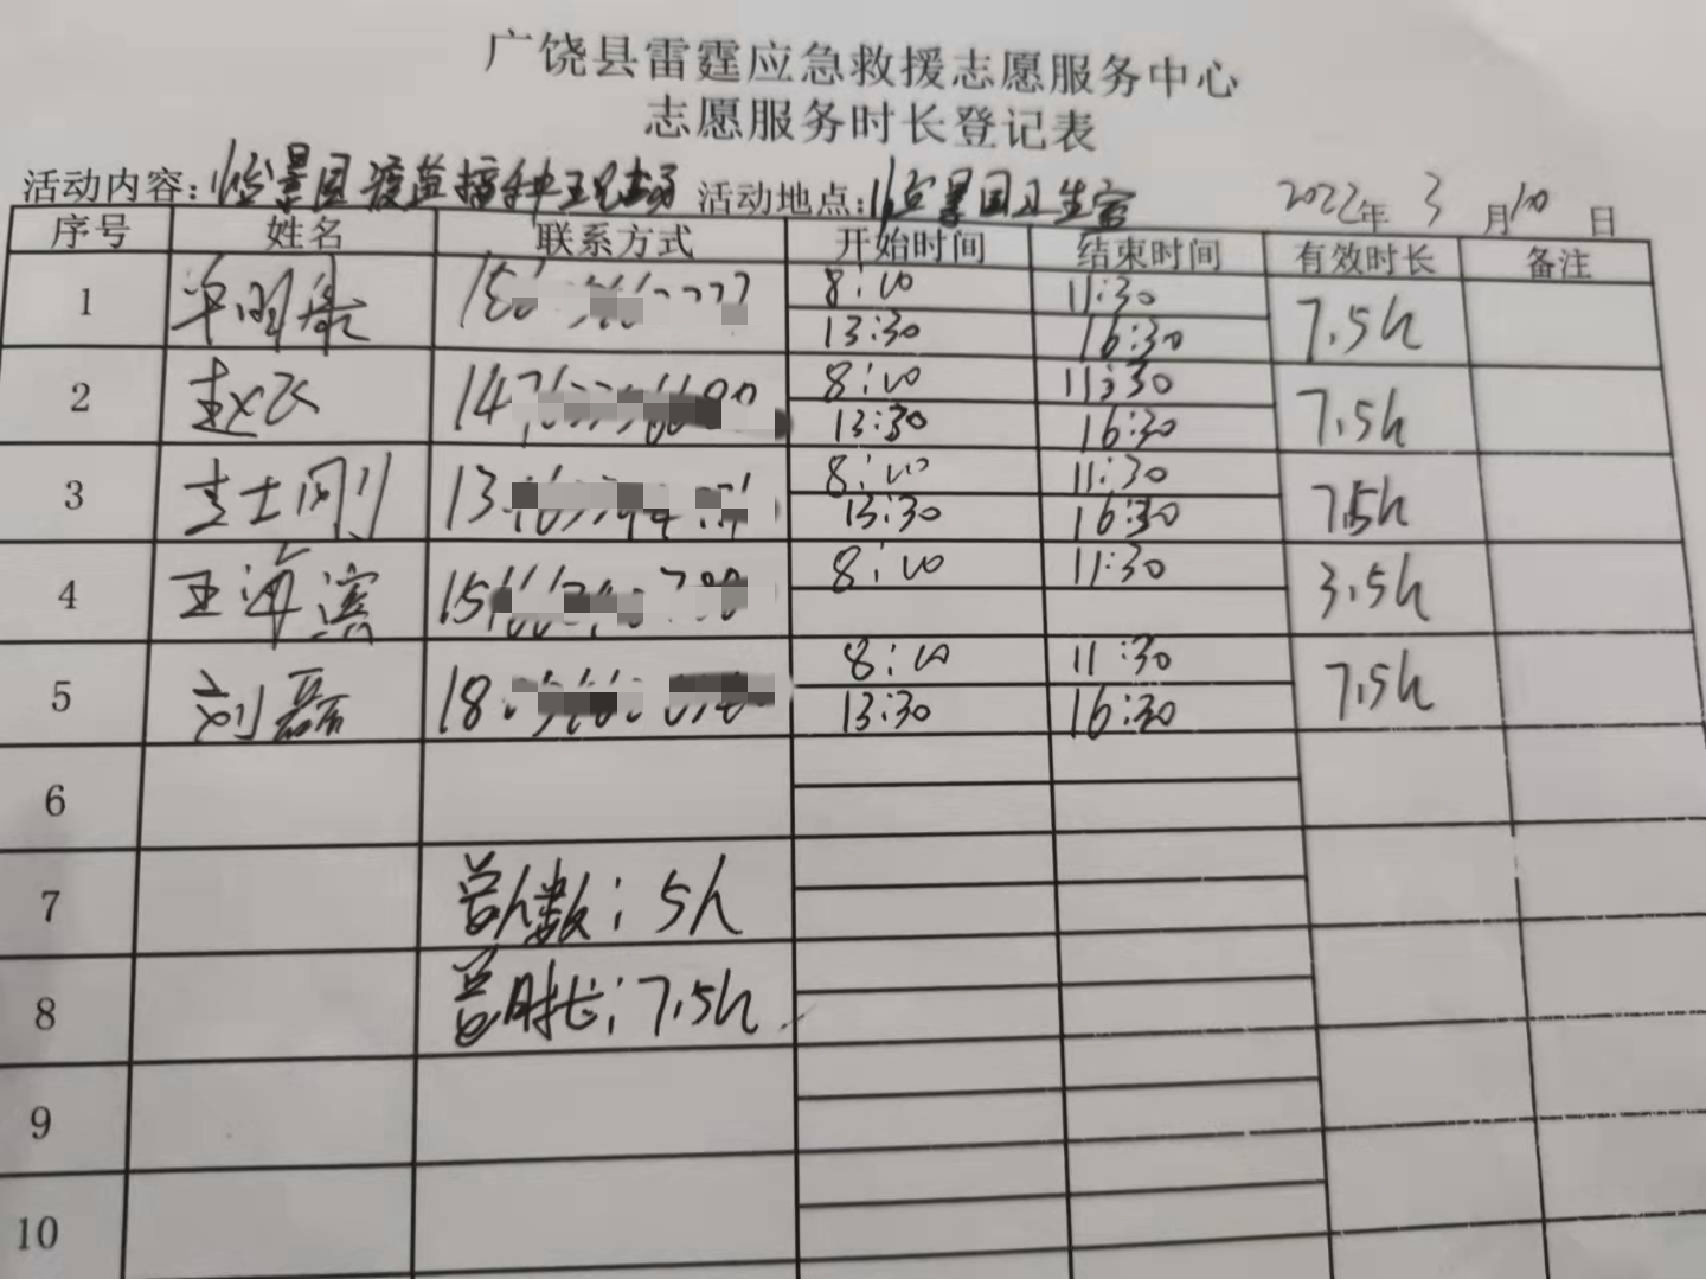 广饶县雷霆应急救援志愿服务中心
志愿服务时长登记表
活动内容：怡景园疫苗接种现场 活动地点：怡景园卫生室 2022年 3 月 10 日
序号 姓名 联系方式 开始时间 结束时间 有效时长 备注
1 8:00 11:30 7.5h
13:30 16:30
2 赵飞 14 8:00 11:30 7.5h
13:30 16:30
3 李士刚 13 8:00 11:30 7.5h
13:30 16:30
4 王海滨 15 8:00 11:30 3.5h
5 刘磊 18 8:00 11:30 7.5h
13:30 16:30
6
7 总人数：5人
8 总时长：7.5h
9
10